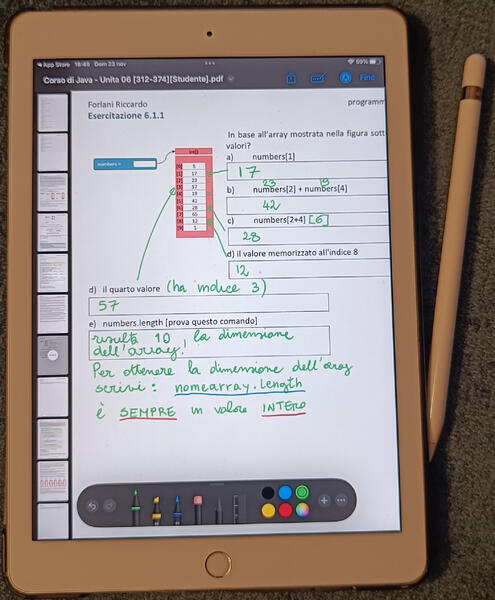 App Store 18:49 Dom 23 nov
59%
Corso di Java - Unita 06 [312-374][Studente].pdf
Fine
Forlani Riccardo
programm
Esercitazione 6.1.1
In base all'array mostrata nella figura sott
valori?
a) numbers[1]
17
23 19
b) numbers[2] + numbers[4]
42
c) numbers[2+4] [6]
28
d) il valore memorizzato all'indice 8
12
int[]
numbers =
[0] 5
[1] 17
[2] 23
[3] 57
[4] 19
[5] 42
[6] 28
[7] 65
[8] 12
[9] 1
d) il quarto valore (ha indice 3)
57
e) numbers.length [prova questo comando]
risulta 10, la dimensione
dell'array!
Per ottenere la dimensione dell'array
scrivi: nomearray.length
è SEMPRE un valore INTERO